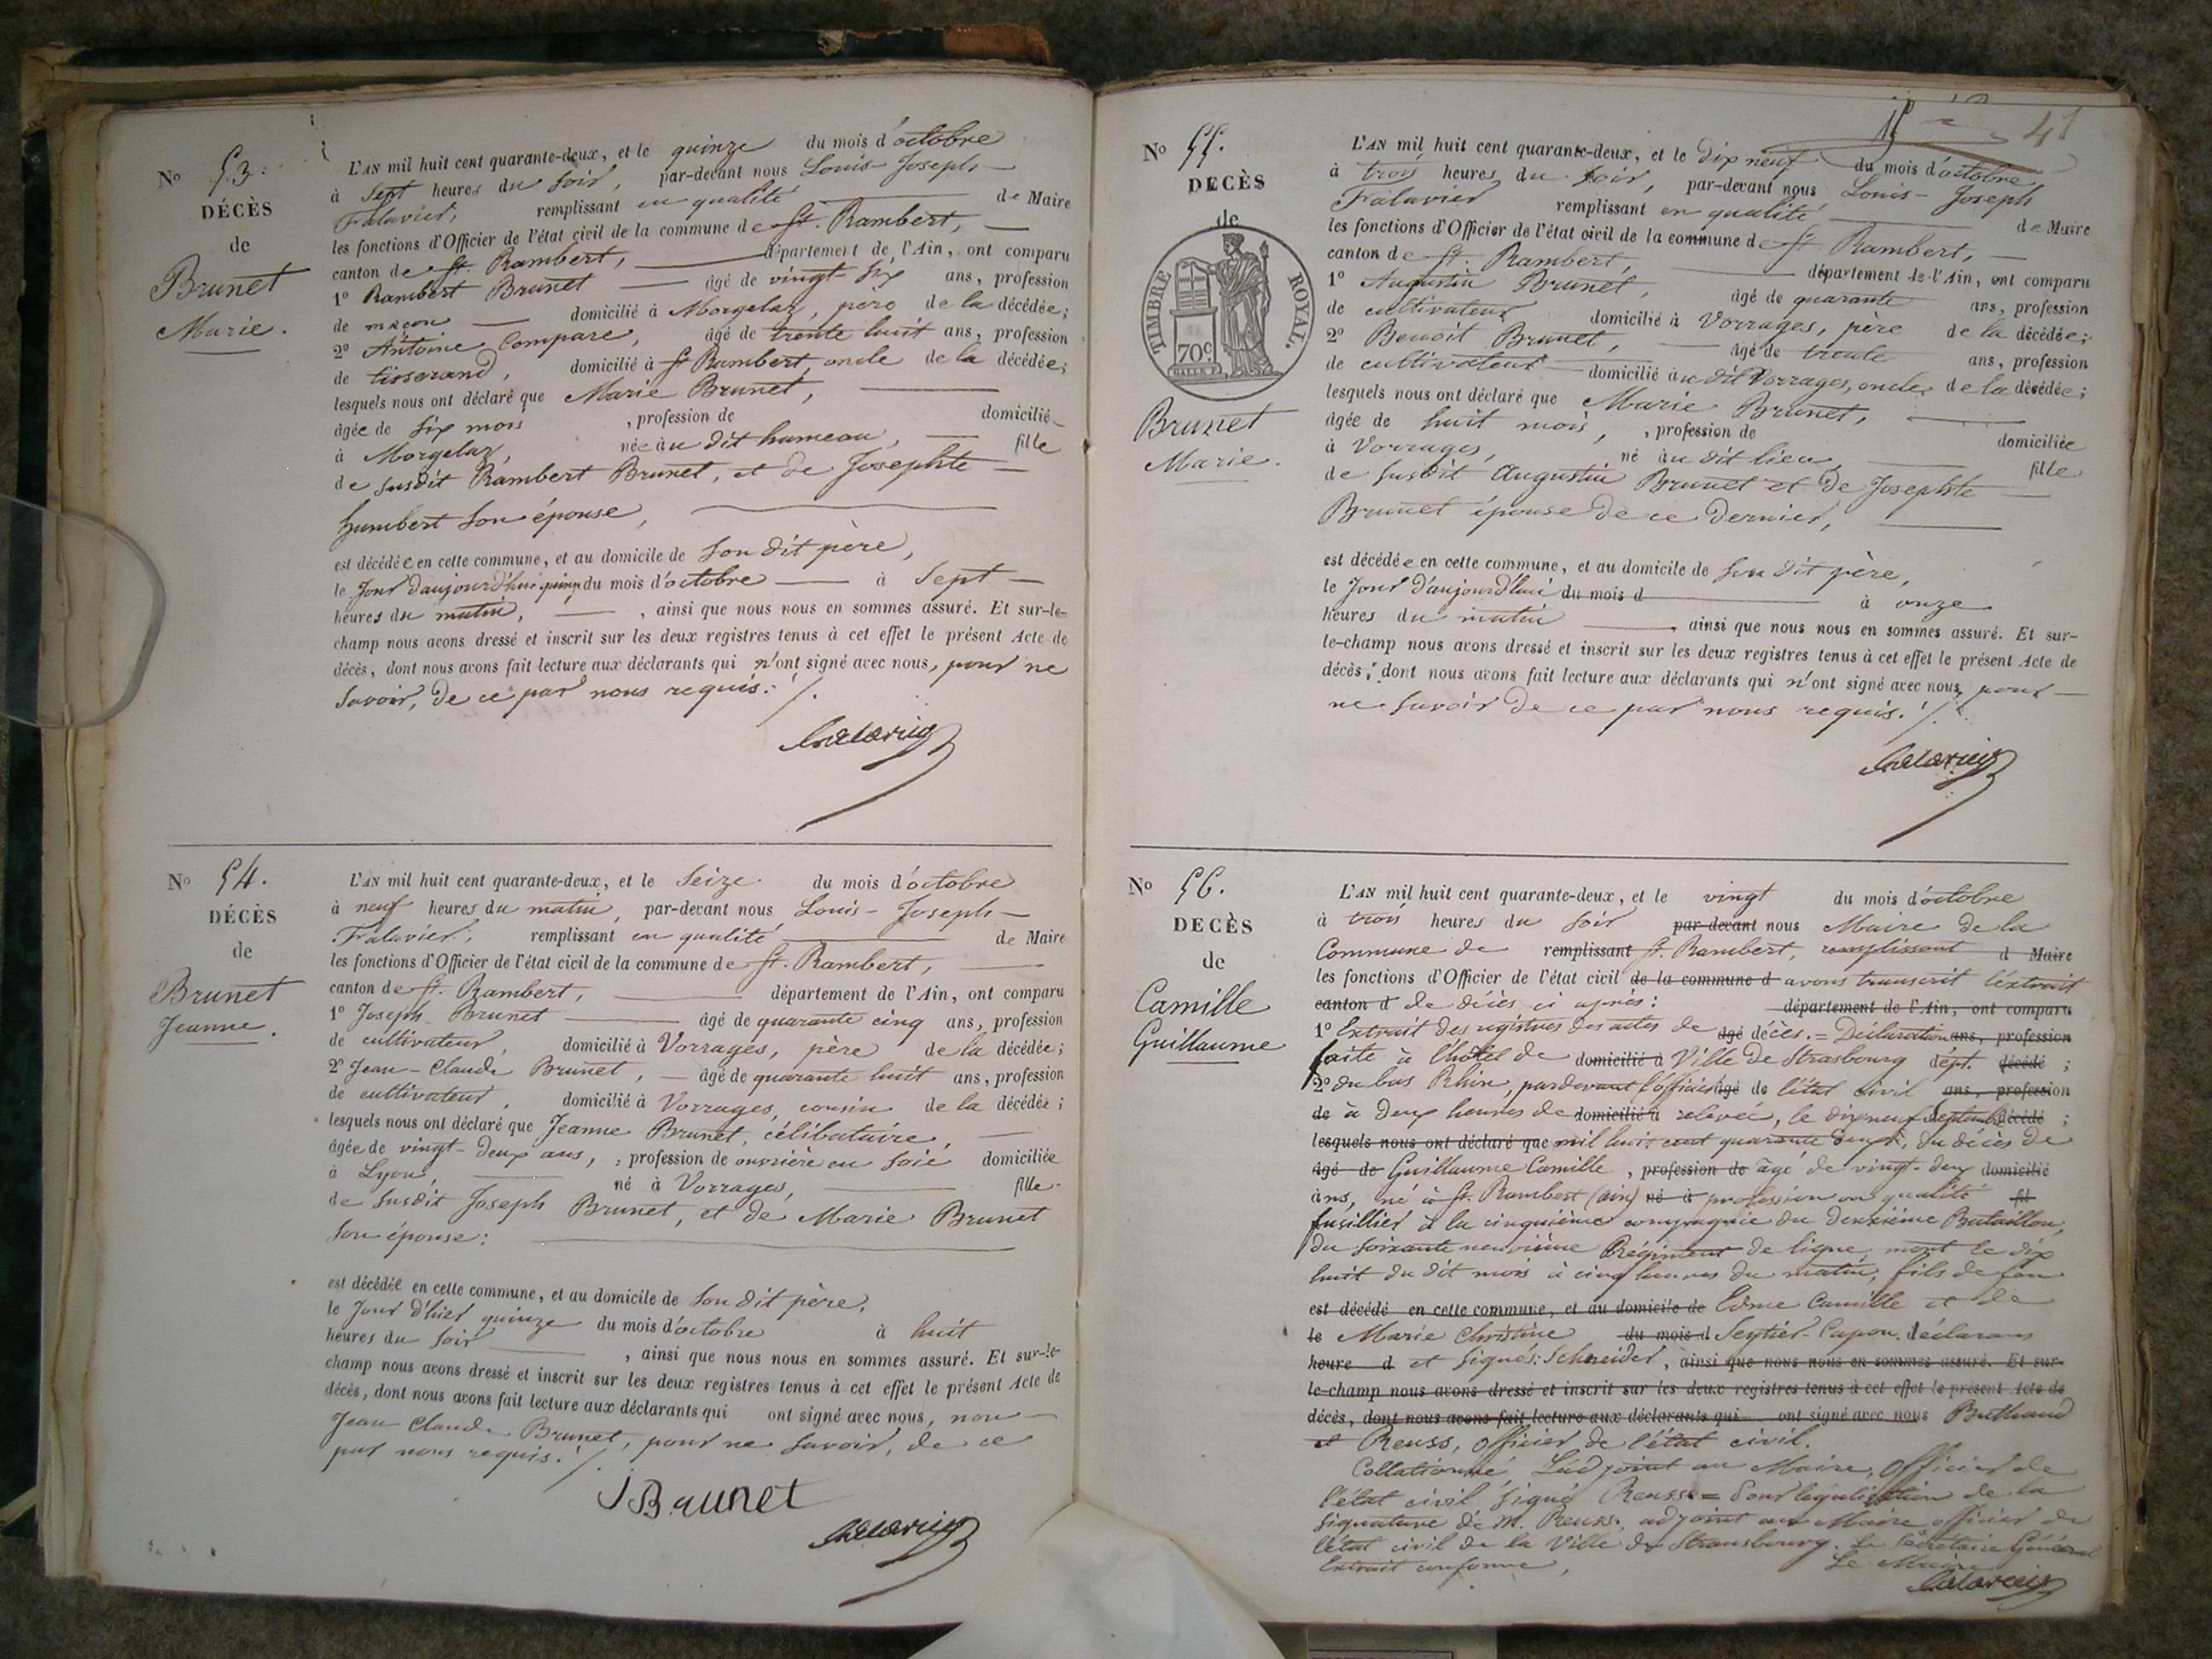 No 53.
DÉCÈS
de
Brunet
Marie.
L'AN mil huit cent quarante-deux, et le quinze du mois d'octobre
à Sept heures du soir, par-devant nous Louis-Joseph
Falavier, remplissant en qualité de Maire
les fonctions d'Officier de l'état civil de la commune de St. Rambert,
canton de St. Rambert, département de l'Ain, ont comparu
1o Rambert Brunet âgé de vingt-six ans, profession
de maçon domicilié à Morgelaz, père de la décédée;
2o Antoine Compare, âgé de trente huit ans, profession
de tisserand, domicilié à St Rambert, oncle de la décédée;
lesquels nous ont déclaré que Marie Brunet,
âgée de six mois, profession de domicilié
à Morgelaz, née au dit hameau, fille
de susdit Rambert Brunet, et de Josephte
humbert son épouse,
est décédée en cette commune, et au domicile de son dit père,
le Jour d'aujourd'hui quinze du mois d'octobre à Sept
heures du matin, , ainsi que nous nous en sommes assuré. Et sur-le-
champ nous avons dressé et inscrit sur les deux registres tenus à cet effet le présent Acte de
décès, dont nous avons fait lecture aux déclarants qui n'ont signé avec nous, pour ne
savoir, de ce par nous requis./.
No 54.
DÉCÈS
de
Brunet
Jeanne.
L'AN mil huit cent quarante-deux, et le Seize du mois d'octobre
à neuf heures du matin, par-devant nous Louis-Joseph
Falavier, remplissant en qualité de Maire
les fonctions d'Officier de l'état civil de la commune de St. Rambert,
canton de St. Rambert, département de l'Ain, ont comparu
1o Joseph Brunet âgé de quarante cinq ans, profession
de cultivateur, domicilié à Vorrages, père de la décédée;
2o Jean-Claude Brunet, âgé de quarante huit ans, profession
de cultivateur, domicilié à Vorrages, cousin de la décédée;
lesquels nous ont déclaré que Jeanne Brunet, célibataire,
âgée de vingt-deux ans, , profession de ouvrière en soie domiciliée
à Lyon, né à Vorrages, fille
de susdit Joseph Brunet, et de Marie Brunet
son épouse:
est décédée en cette commune, et au domicile de son dit père,
le Jour d'hier quinze du mois d'octobre à huit
heures du soir , ainsi que nous nous en sommes assuré. Et sur-le-
champ nous avons dressé et inscrit sur les deux registres tenus à cet effet le présent Acte de
décès, dont nous avons fait lecture aux déclarants qui ont signé avec nous, non
Jean Claude Brunet, pour ne savoir, de ce
par nous requis./.
J Brunet
41
No 55.
DÉCÈS
de
TIMBRE ROYAL.
70c
Brunet
Marie.
L'AN mil huit cent quarante-deux, et le dix neuf du mois d'octobre
à trois heures du soir, par-devant nous Louis-Joseph
Falavier remplissant en qualité de Maire
les fonctions d'Officier de l'état civil de la commune de St Rambert,
canton de St. Rambert, département de l'Ain, ont comparu
1o Augustin Brunet, âgé de quarante ans, profession
de cultivateur domicilié à Vorrages, père de la décédée;
2o Benoit Brunet, âgé de trente ans, profession
de cultivateur domicilié au dit Vorrages, oncle de la décédée;
lesquels nous ont déclaré que Marie Brunet,
âgée de huit mois, , profession de domiciliée
à Vorrages, né au dit lieu fille
de susdit Augustin Brunet et de Josephte
Brunet épouse de ce dernier,
est décédée en cette commune, et au domicile de son dit père,
le Jour d'aujourd'hui du mois d à onze
heures du matin , ainsi que nous nous en sommes assuré. Et sur-
le-champ nous avons dressé et inscrit sur les deux registres tenus à cet effet le présent Acte de
décès, dont nous avons fait lecture aux déclarants qui n'ont signé avec nous, pour
ne savoir de ce par nous requis./.
No 56.
DÉCÈS
de
Camille
Guillaume
L'AN mil huit cent quarante-deux, et le vingt du mois d'octobre
à trois heures du soir par-devant nous Maire de la
Commune de remplissant St. Rambert, remplissant d Maire
les fonctions d'Officier de l'état civil de la commune d avons transcrit l'extrait
canton d de décès ci après: département de l'Ain, ont comparu
1o Extrait des registres des actes de âgé décès. = Déclaration ans, profession
faite à l'hôtel de domicilié à Ville de Strasbourg dépt. décédé ;
2o du bas Rhin, pardevant l'officier âgé de l'état civil ans, profession
de à deux heures de domicilié à relevée, le dix neuf septembre décédé ;
lesquels nous ont déclaré que mil huit cent quarante deux, du décès de
âgé de Guillaume Camille, profession de âgé de vingt-deux domicilié
ans, né à St. Rambert (ain) né à profession ou qualité fil
fusillier à la cinquième compagnie du deuxième Bataillon,
du soixante neuvième Régiment de ligne, mort le dix
huit du dit mois à cinq heures du matin, fils de feu
est décédé en cette commune, et au domicile de Edme Camille et de
le Marie Christine du mois d Seytier-Capon. déclarans
heure d et signés: Schneider, ainsi que nous nous en sommes assuré. Et sur-
le-champ nous avons dressé et inscrit sur les deux registres tenus à cet effet le présent Acte de
décès, dont nous avons fait lecture aux déclarants qui ont signé avec nous
et Reuss, officier de l'état civil.
Collationné, L'adjoint au Maire, Officier de
l'état civil signé Reuss = Pour légalisation de la
signature de M. Reuss, adjoint au Maire officier de
l'état civil de la Ville de Strausbourg. Le Secrétaire Général
Extrait conforme, Le Maire